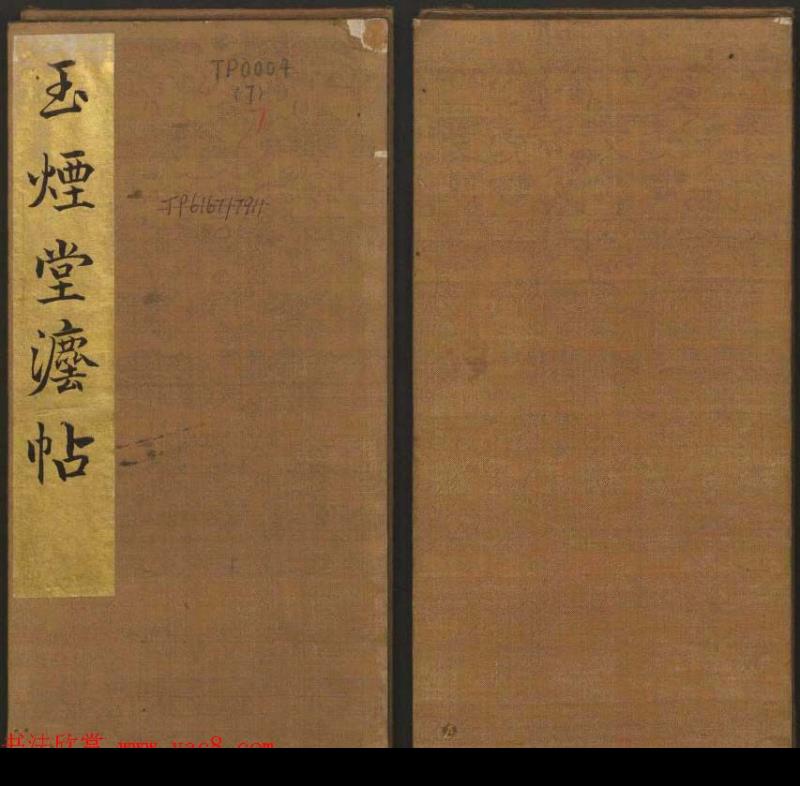 玉煙堂灋帖
TP0004
(7)
7
书法欣赏 www.yac8.com